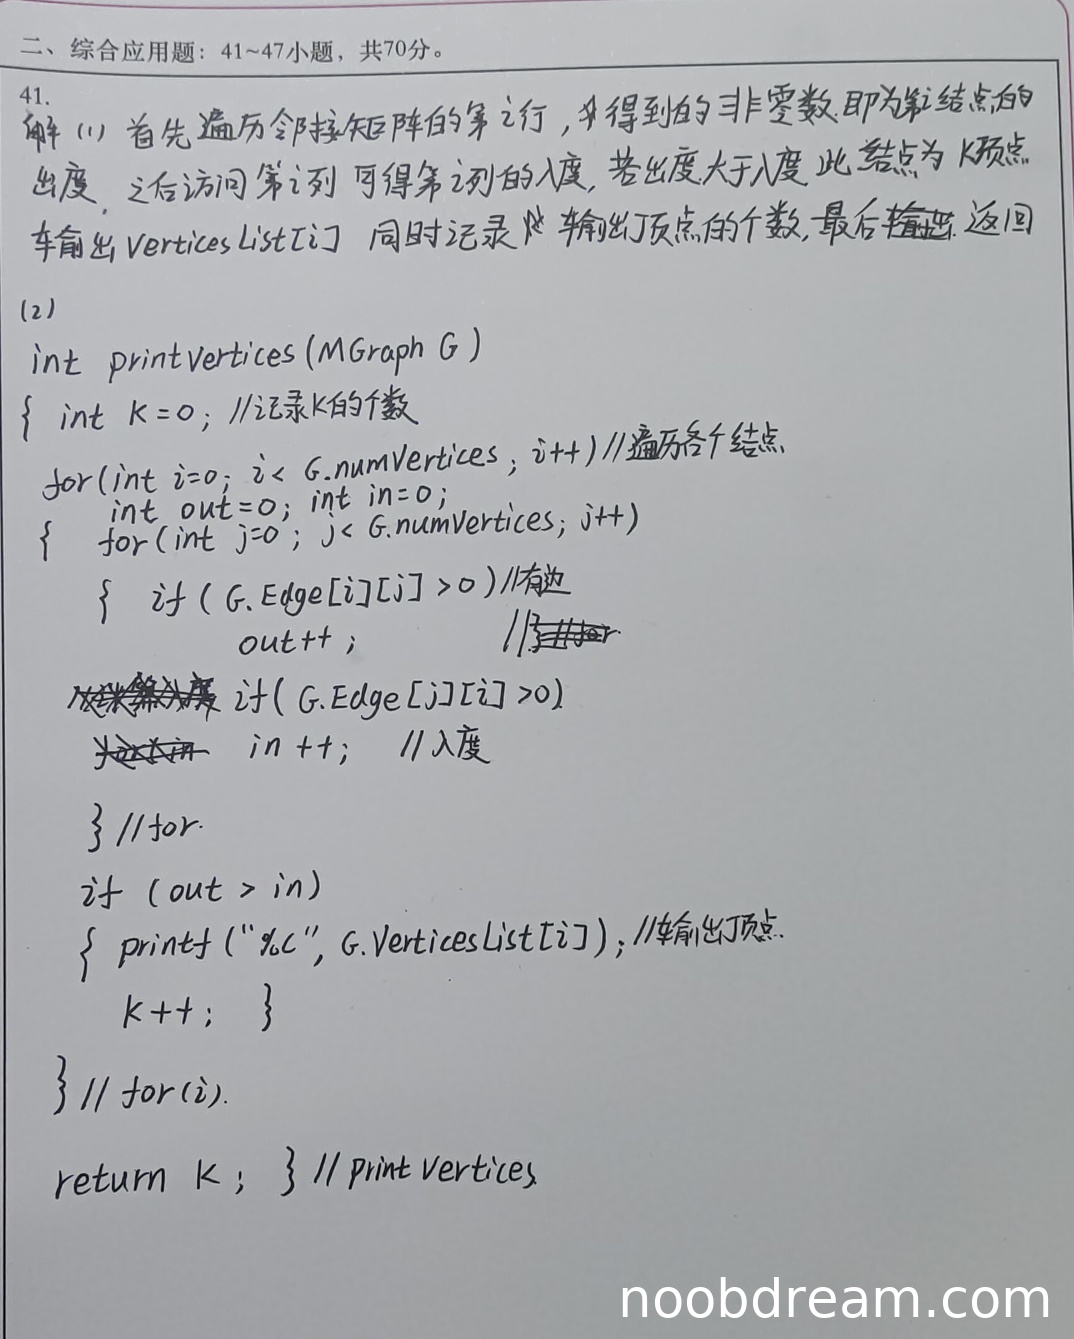 二、综合应用题：41~47小题，共70分。
41.
解 (1) 首先遍历邻接矩阵的第i行，得到的非零数.即为第i结点的
出度，之后访问第i列 可得第i列的入度，若出度大于入度 此结点为 K顶点
输出 VerticesList[i] 同时记录 输出顶点的个数，最后 返回
(2)
int printVertices(MGraph G)
{ int K=0; //记录K的个数
for(int i=0; i< G.numVertices; i++) //遍历各个结点
int out=0; int in=0;
{ for(int j=0; j< G.numVertices; j++)
{ if (G.Edge[i][j] >0) //有边
out++; //
if( G.Edge[j][i] >0)
in ++; //入度
} //for.
if (out > in)
{ printf ("%c", G.VerticesList[i]); //输出顶点.
K++; }
} // for(i).
return K; } // printVertices.
noobdream.com